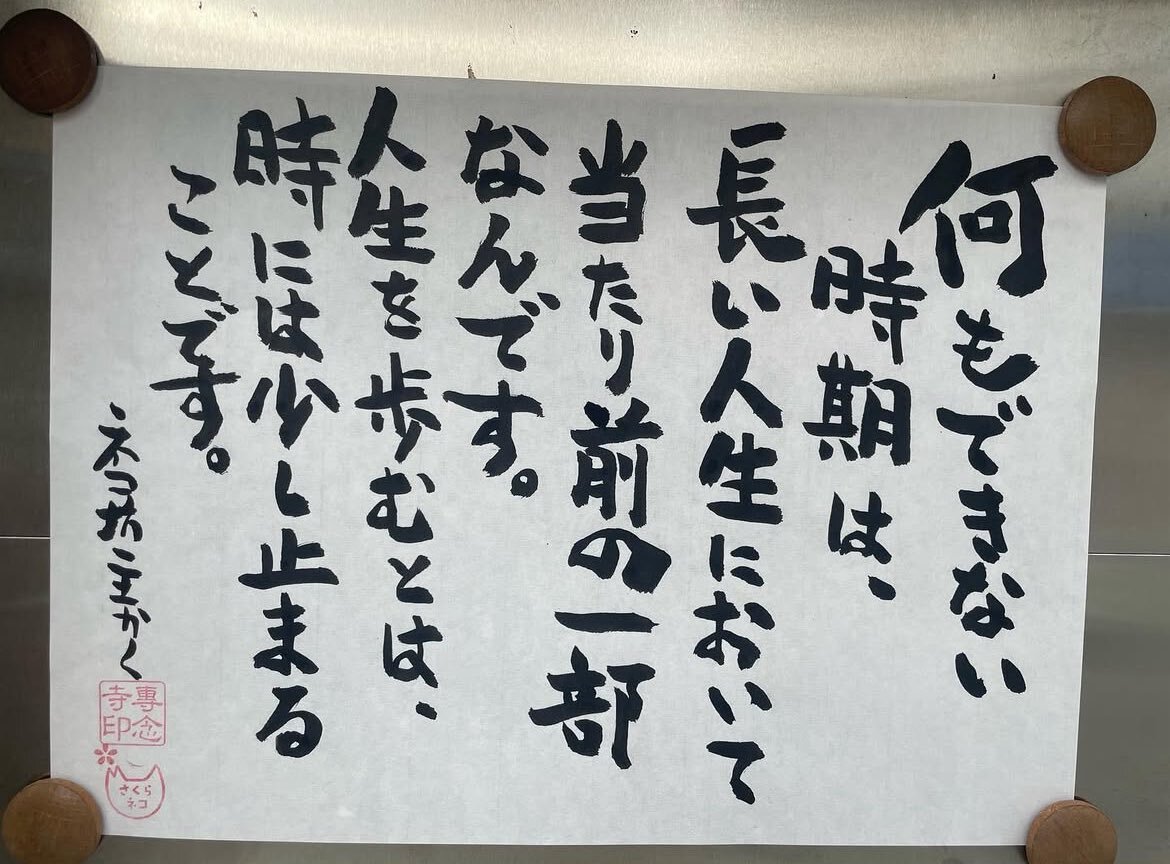 何もできない
時期は、
長い人生において
当たり前の一部
なんです。
人生を歩むとは、
時には少し止まる
ことです。
ネコ坊主かく
專念
寺印
さくら
ネコ